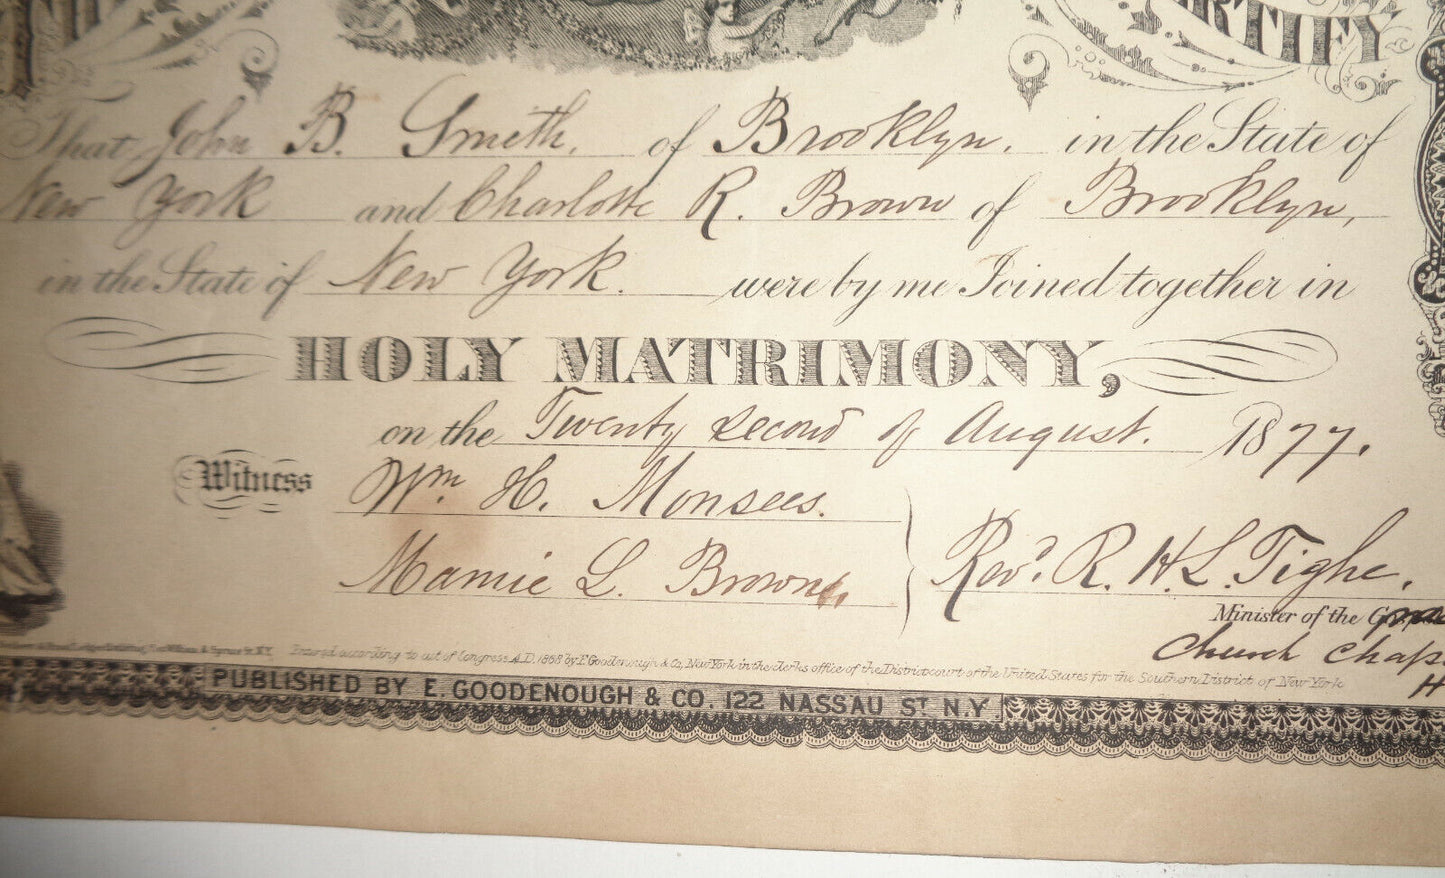 CERTIFY
That John B. Smith, of Brooklyn. in the State of
New York and Charlotte R. Brown of Brooklyn,
in the State of New York. were by me Joined together in
HOLY MATRIMONY,
on the Twenty second of August. 1877.
Witness Wm H. Monsees.
Mamie L. Brown,
Revd. R. H. L. Tighe.
Minister of the
Church Chap
H
Entered according to act of Congress A.D. 1868 by E. Goodenough & Co, New York in the clerks office of the District court of the United States for the Southern District of New York
PUBLISHED BY E. GOODENOUGH & CO. 122 NASSAU ST N.Y.